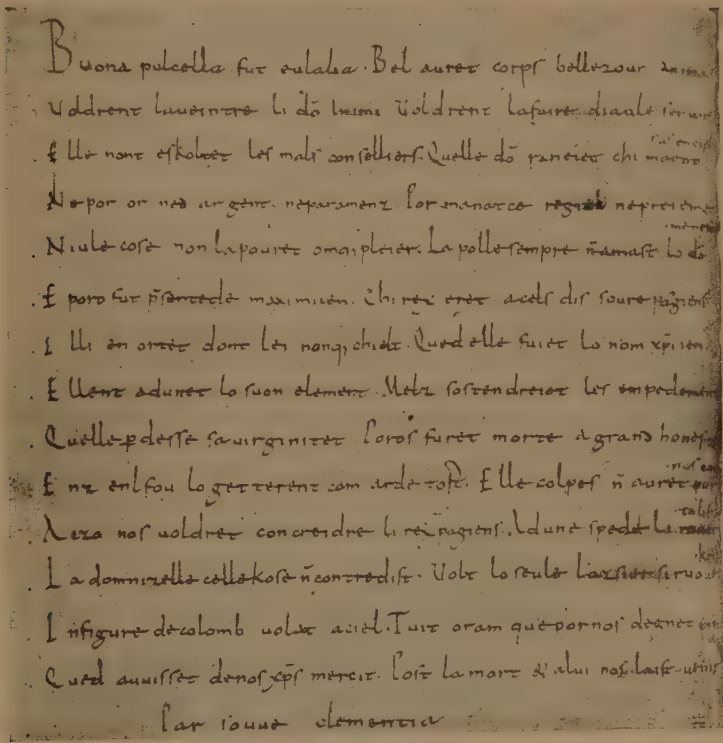 Buona pulcella fut eulalia. Bel auret corps bellezour anima
Voldrent laueintre li dō Inimi. Voldrent lafaire diaule seruir
sus en ciel
Elle nont eskoltet les mals conselliers. Quelle dō raneiet chi maent
Ne por or ned argent. ne paramenz. Por manatce regiel ne preiem
ment
Niule cose non la pouret omq; pleier. La polle sempre n̄ amast lo dō
E poro fut p̄sentede maximiien. Chi rex eret a cels dis soure pagiens
Illi en ortet dont lei nonq; chielt. Qued elle fuiet lo nom xp̄iien
Ellent adunet lo suon element. Melz sostendreiet les empedementz
Quelle ꝑdesse sa uirginitet. Poros furet morte a grand honestet
nos coist
Enz enl fou lo getterent com arde tost. Elle colpes n̄ auret por
tolir lo
Aezo nos uoldret concreidre li rex pagiens. Ad une spede li roueret
La domnizelle celle kose n̄ contredist. Volt lo seule lazsier si ruouet
In figure de colomb uolat a ciel. Tuit oram que por nos degnet
Qued auuisset de nos xp̄s mercit. Post la mort & a lui nos laist uenir
Par souue clementia